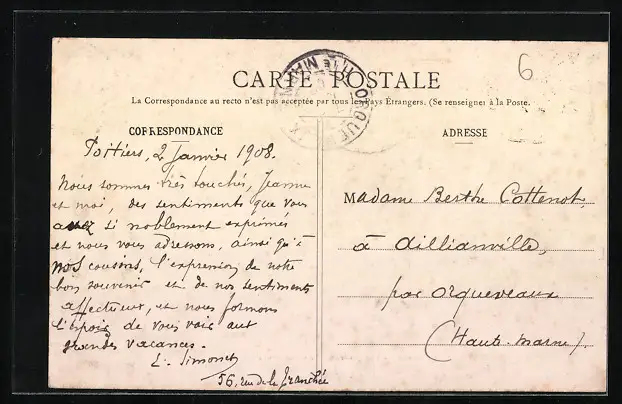 6
CARTE POSTALE
La Correspondance au recto n'est pas acceptée par tous les Pays Étrangers. (Se renseigner à la Poste.
CORRESPONDANCE
ADRESSE
Poitiers, 2 Janvier 1908.
Nous sommes très touchés, Jeanne
et moi, des sentiments que vous
avez si noblement exprimés
et nous vous adressons, ainsi qu'à
nos cousins, l'expression de notre
bon souvenir et de nos sentiments
affectueux, et nous formons
l'espoir de vous voir aux
grandes vacances.
E. Simonet
56, rue de la Tranchée
Madame Berthe Cottenot,
à Aillianville,
par Orquevaux
(Haute-Marne).